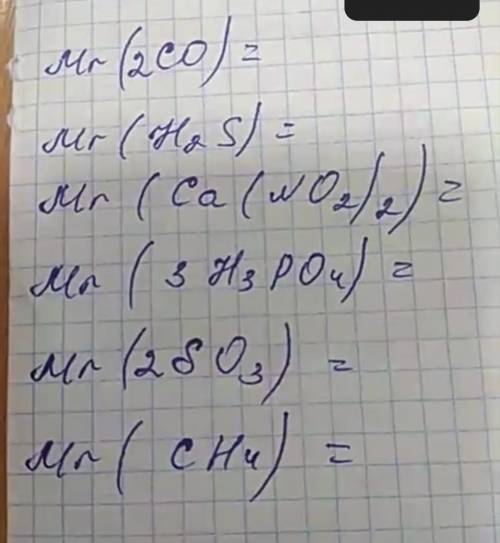 Mr (2CO) =
Mr (H2S) =
Mr (Ca(NO2)2) =
Mr (3H3PO4) =
Mr (2SO3) =
Mr (CH4) =